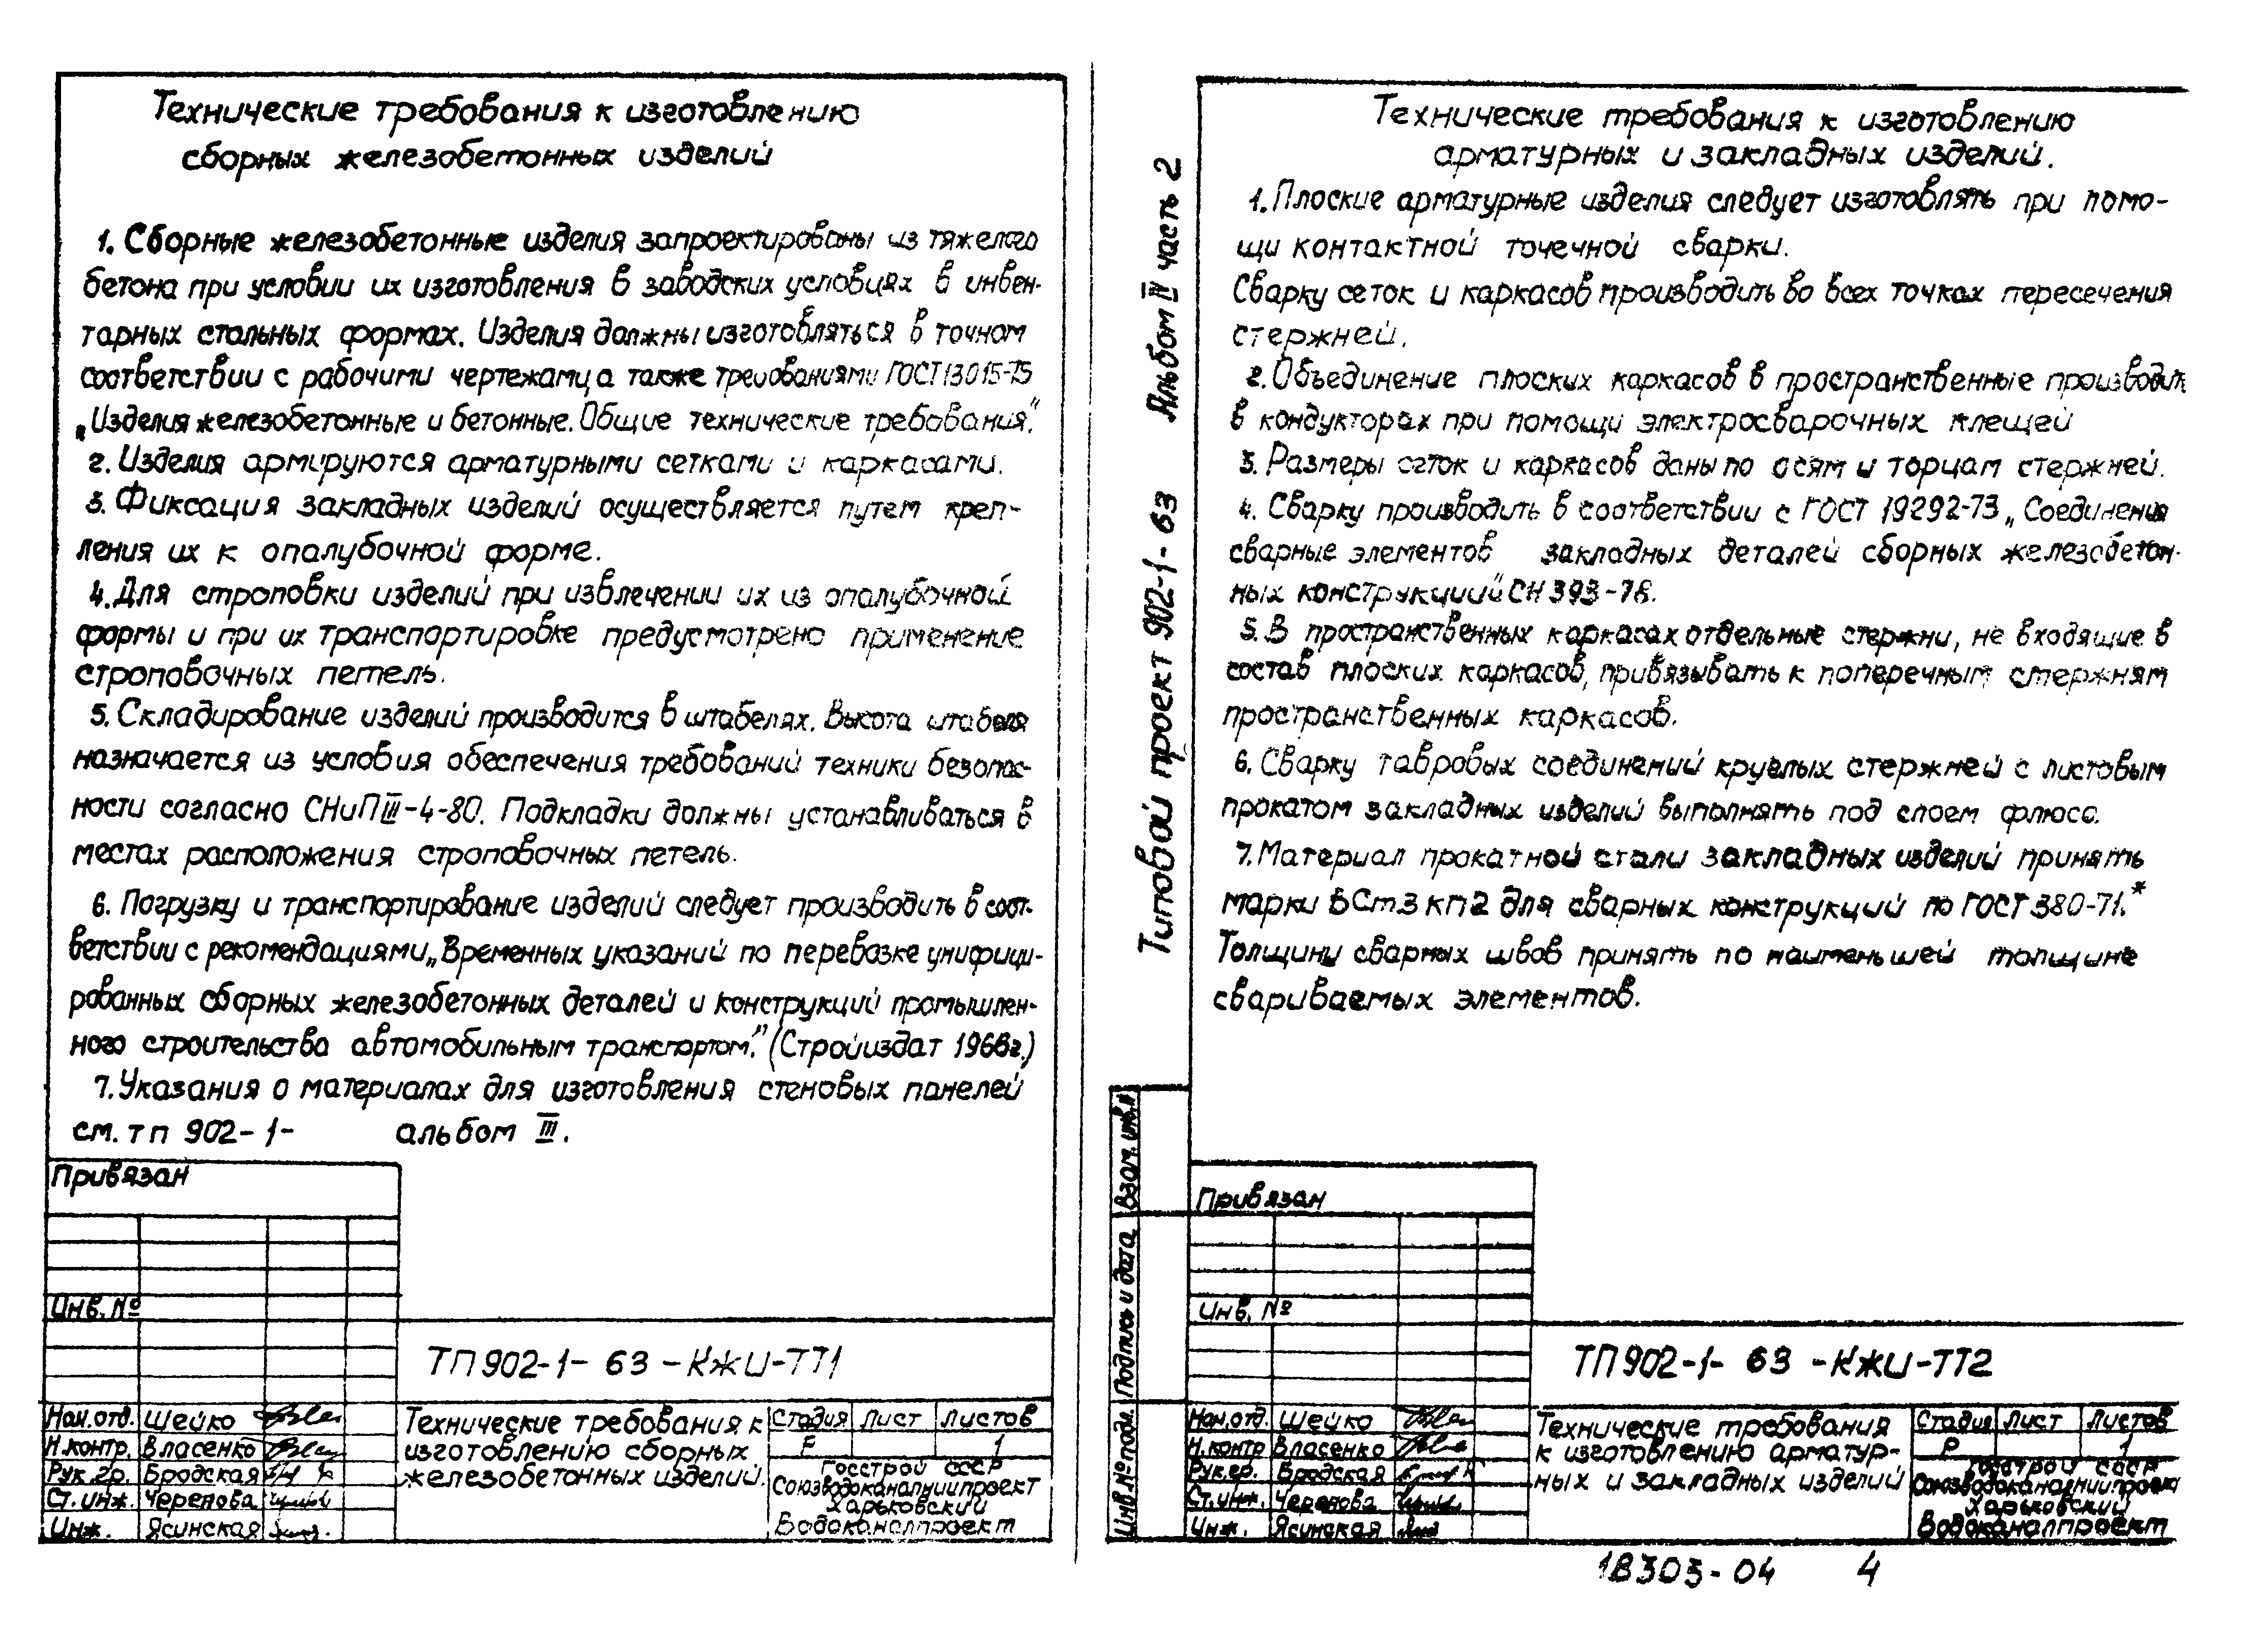 Технические требования к изготовлению
сборных железобетонных изделий
1. Сборные железобетонные изделия запроектированы из тяжелого
бетона при условии их изготовления в заводских условиях в инвен-
тарных стальных формах. Изделия должны изготовляться в точном
соответствии с рабочими чертежами, а также требованиями ГОСТ 13015-75
„Изделия железобетонные и бетонные. Общие технические требования".
2. Изделия армируются арматурными сетками и каркасами.
3. Фиксация закладных изделий осуществляется путем креп-
ления их к опалубочной форме.
4. Для строповки изделий при извлечении их из опалубочной
формы и при их транспортировке предусмотрено применение
строповочных петель.
5. Складирование изделий производится в штабелях. Высота штабеля
назначается из условия обеспечения требований техники безопас-
ности согласно СНиП III-4-80. Подкладки должны устанавливаться в
местах расположения строповочных петель.
6. Погрузку и транспортирование изделий следует производить в соот-
ветствии с рекомендациями „Временных указаний по перевозке унифици-
рованных сборных железобетонных деталей и конструкций промышлен-
ного строительства автомобильным транспортом." (Стройиздат 1966г.)
7. Указания о материалах для изготовления стеновых панелей
см. тп 902-1- альбом III.
Привязан
Инв. №
ТП 902-1- 63 -КЖИ-ТТ1
Нач.отд. Шейко
Н.контр. Власенко
Рук. гр. Бродская
Ст. инж. Черепова
Инж. Ясинская
Технические требования к
изготовлению сборных
железобетонных изделий.
Стадия Лист Листов
Р 1
Госстрой СССР
Союзводоканалниипроект
Харьковский
Водоканалпроект
Типовой проект 902-1-63 Альбом IV часть 2
Технические требования к изготовлению
арматурных и закладных изделий.
1. Плоские арматурные изделия следует изготовлять при помо-
щи контактной точечной сварки.
Сварку сеток и каркасов производить во всех точках пересечения
стержней.
2. Объединение плоских каркасов в пространственные производить
в кондукторах при помощи электросварочных клещей
3. Размеры сеток и каркасов даны по осям и торцам стержней.
4. Сварку производить в соответствии с ГОСТ 19292-73 „Соединения
сварные элементов закладных деталей сборных железобетон-
ных конструкций" СН 393-78.
5. В пространственных каркасах отдельные стержни, не входящие в
состав плоских каркасов, привязывать к поперечным стержням
пространственных каркасов.
6. Сварку тавровых соединений круглых стержней с листовым
прокатом закладных изделий выполнять под слоем флюса.
7. Материал прокатной стали закладных изделий принять
марки ВСт3кп2 для сварных конструкций по ГОСТ 380-71.*
Толщину сварных швов принять по наименьшей толщине
свариваемых элементов.
Взам. инв. №
Подпись и дата
Инв. № подл.
Привязан
Инв. №
ТП 902-1- 63 -КЖИ-ТТ2
Нач.отд. Шейко
Н.контр Власенко
Рук.гр. Бродская
Ст.инж. Черепова
Инж. Ясинская
Технические требования
к изготовлению арматур-
ных и закладных изделий
Стадия Лист Листов
Р 1
Госстрой СССР
Союзводоканалниипроект
Харьковский
Водоканалпроект
18303-04 4